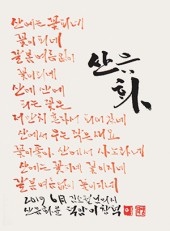 산유화
산에는 꽃피네
꽃이 피네
갈 봄 여름없이
꽃이 피네
산에 산에
피는 꽃은
저만치 혼자서 피어있네
산에서 우는 작은새요
꽃이좋아 산에서 사노라네
산에는 꽃지네 꽃이지네
갈 봄 여름없이 꽃이지네
2019 6月 김소월
산유화